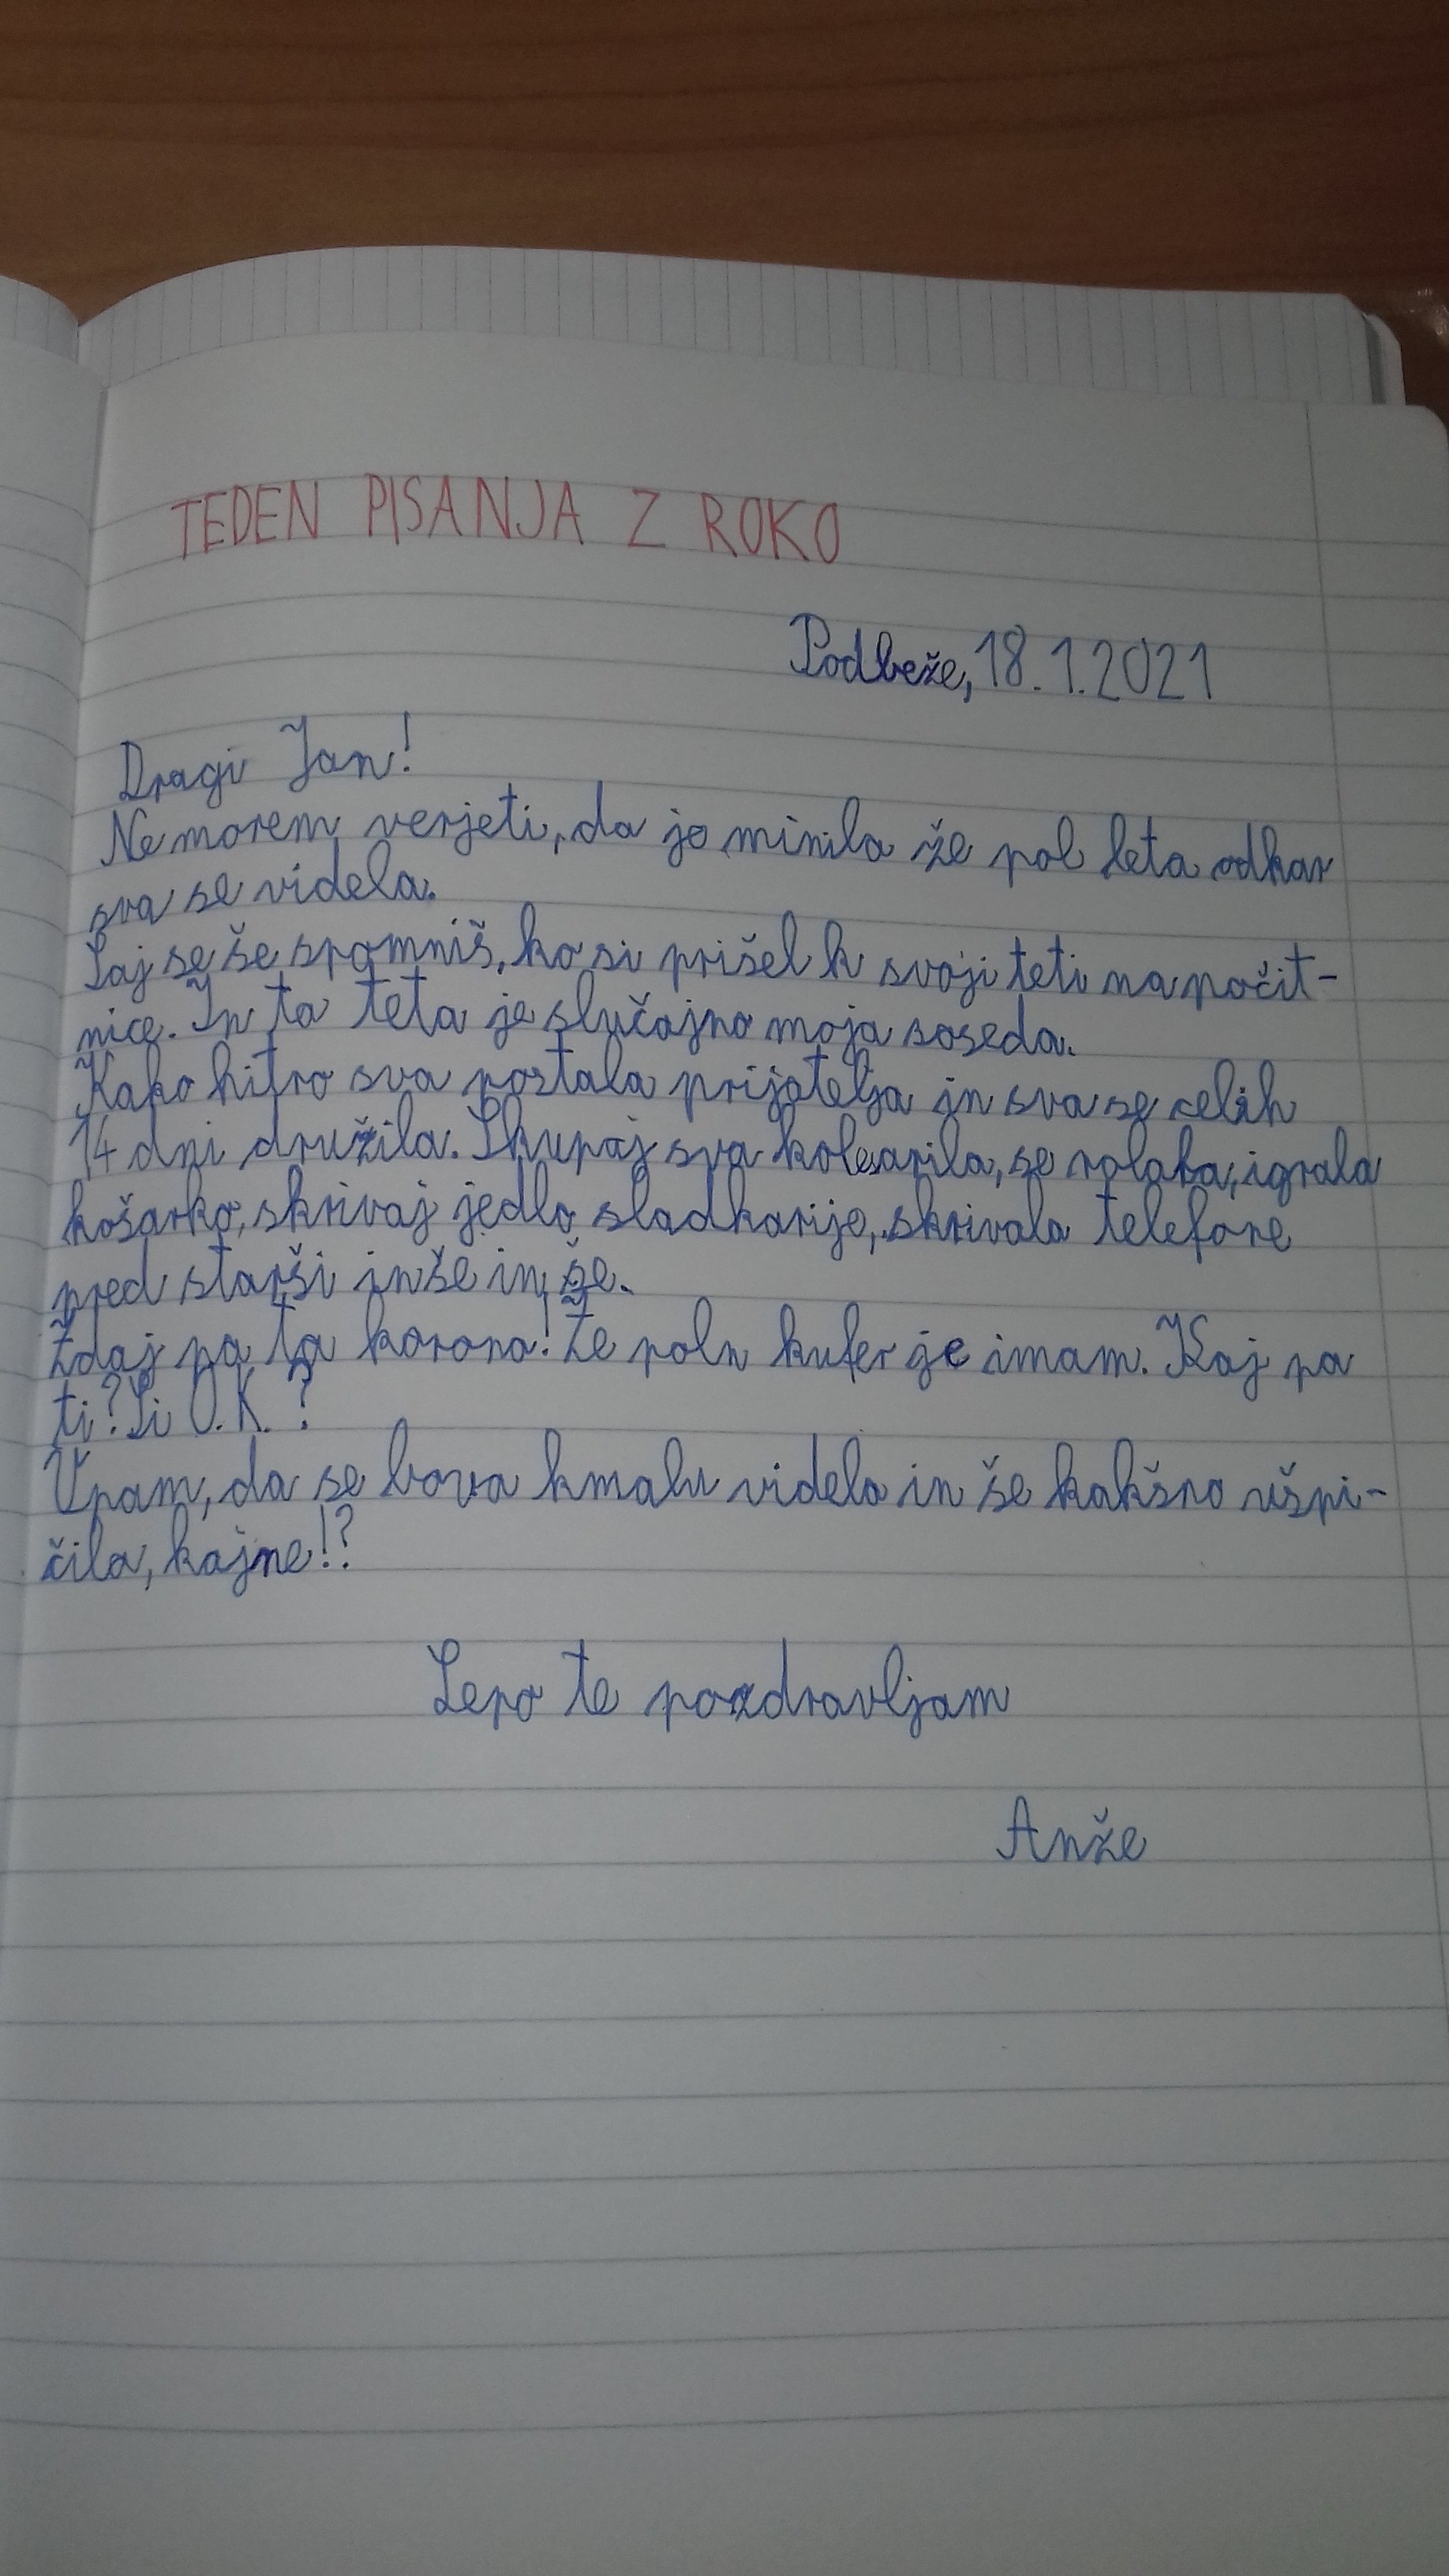 TEDEN PISANJA Z ROKO
Podbeže, 18.1.2021
Dragi Jan!
Ne morem verjeti, da je minila že pol leta odkar
sva se videla.
Saj se še spomniš, ko si prišel k svoji teti na počit-
nice. In ta teta je slučajno moja soseda.
Kako hitro sva postala prijatelja in sva se celih
14 dni družila. Skupaj sva kolesarila, se rolala, igrala
košarko, skrivaj jedla sladkarije, skrivala telefone
pred starši in še in še.
Zdaj pa ta korona! Že poln kufer je imam. Kaj pa
ti? Si O.K.?
Upam, da se bova kmalu videla in še kakšno ušpi-
čila, kajne!?
Lepo te pozdravljam
Anže